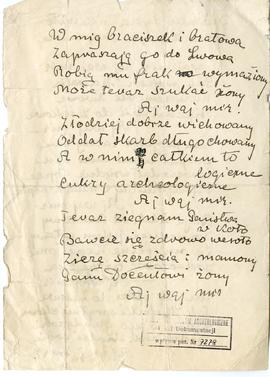 W mig braciszek i bratowa
Zapraszają go do Lwowa
Robią mu frak wymażony
Może teraz szukać żony
Aj waj mir.
Złodziej dobrze wichowany
Oddał skarb długo chowany
A w nim całkiem to
logiczne
Cukry archeologiczne
Aj waj mir.
Teraz żegnam Państwa
w koło
Bawcie się zdrowo wesoło
Życzę szczęścia i mamony
Panu Docentowi żony
Aj waj mir
ARCHEOLOGICZNE
Dokumentacji
wpływu poz. Nr 7278